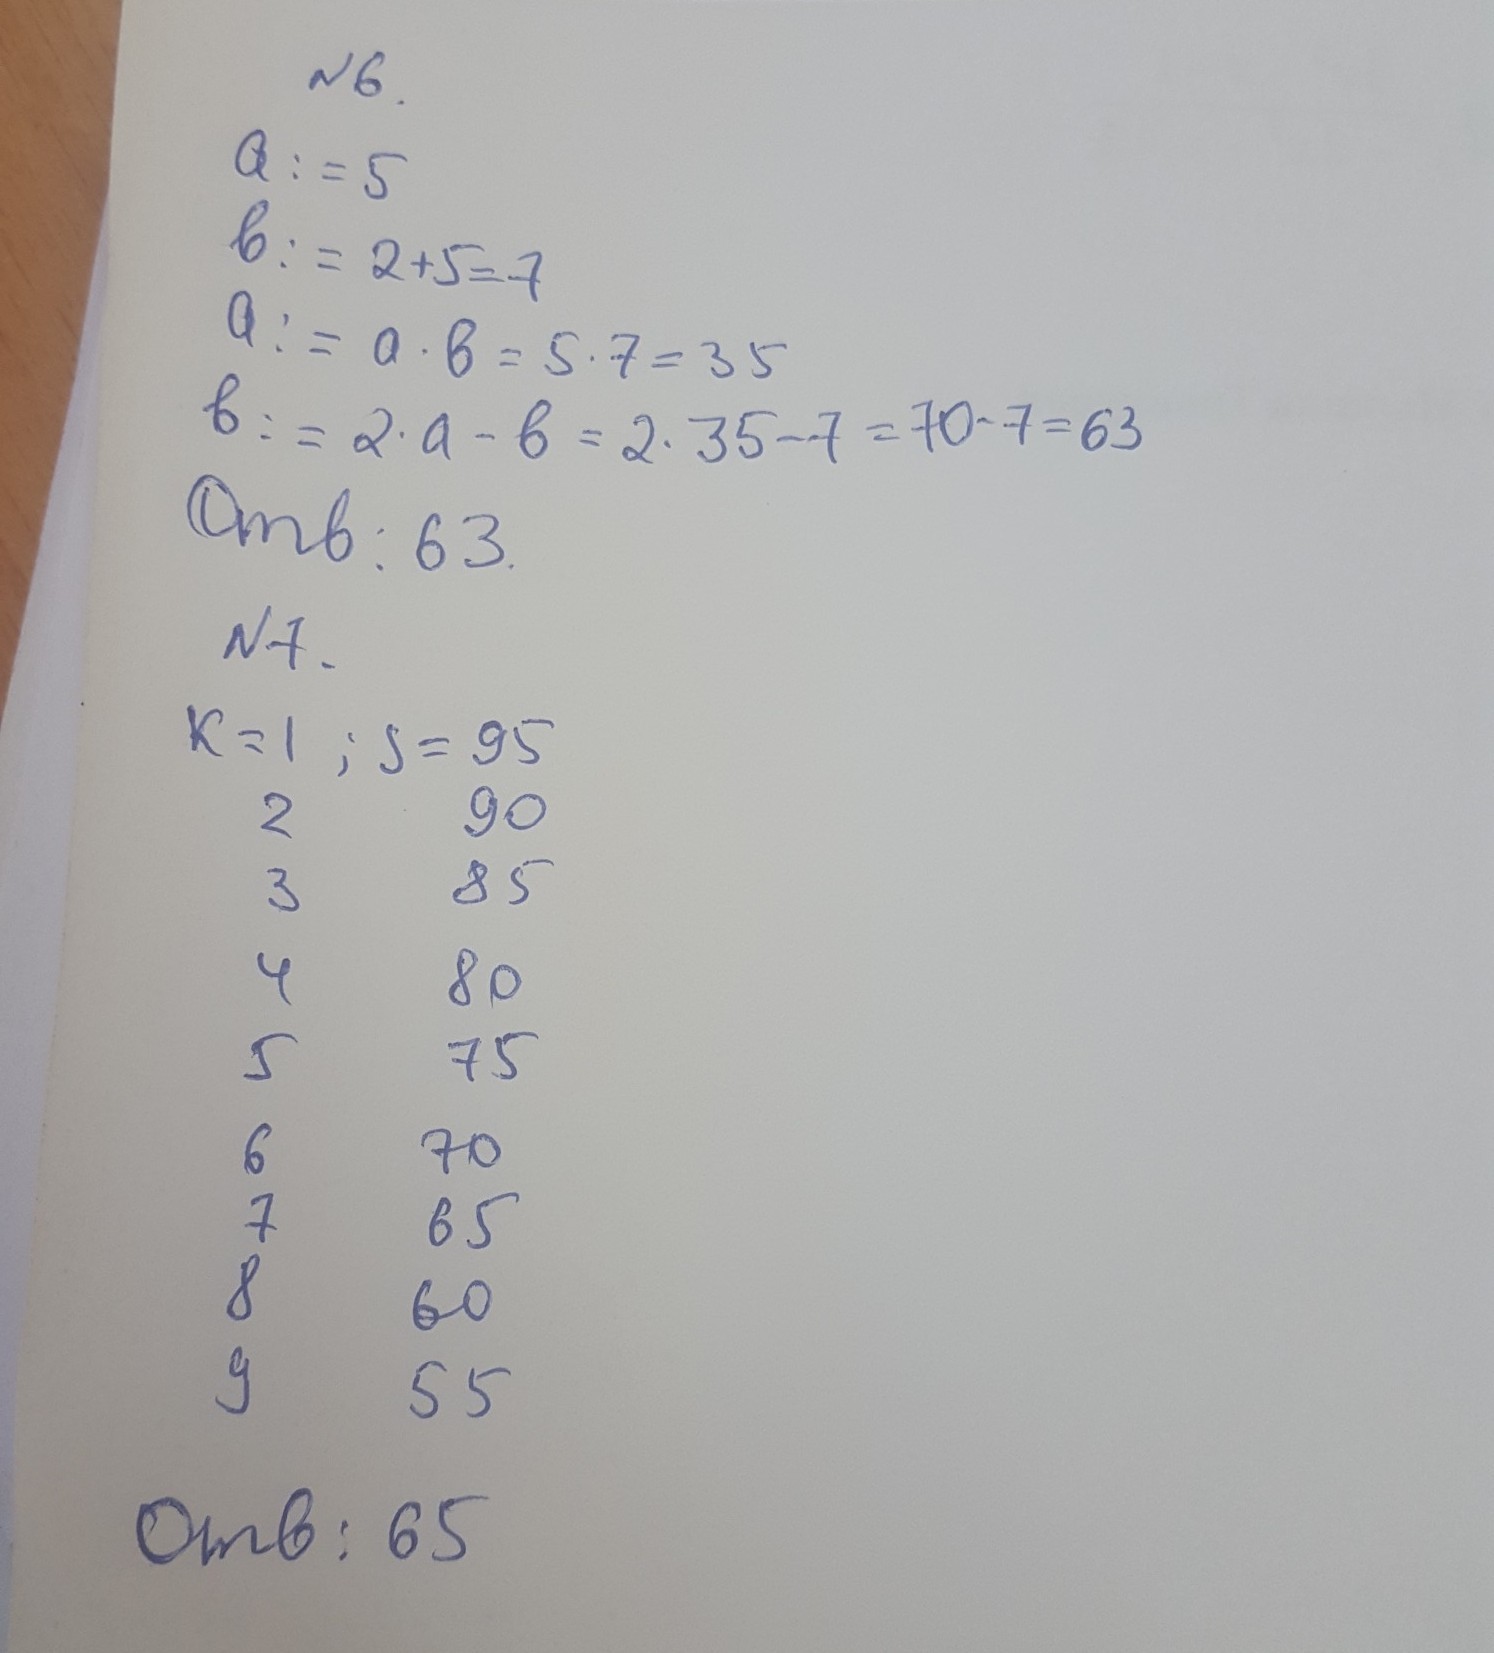 N6.
a:=5
в:= 2+5=7
a:= a·в = 5·7=35
в:= 2·a-в = 2·35-7=70-7=63
Отв: 63.
N7.
K=1 ; S=95
2 90
3 85
4 80
5 75
6 70
7 65
8 60
9 55
Отв: 65